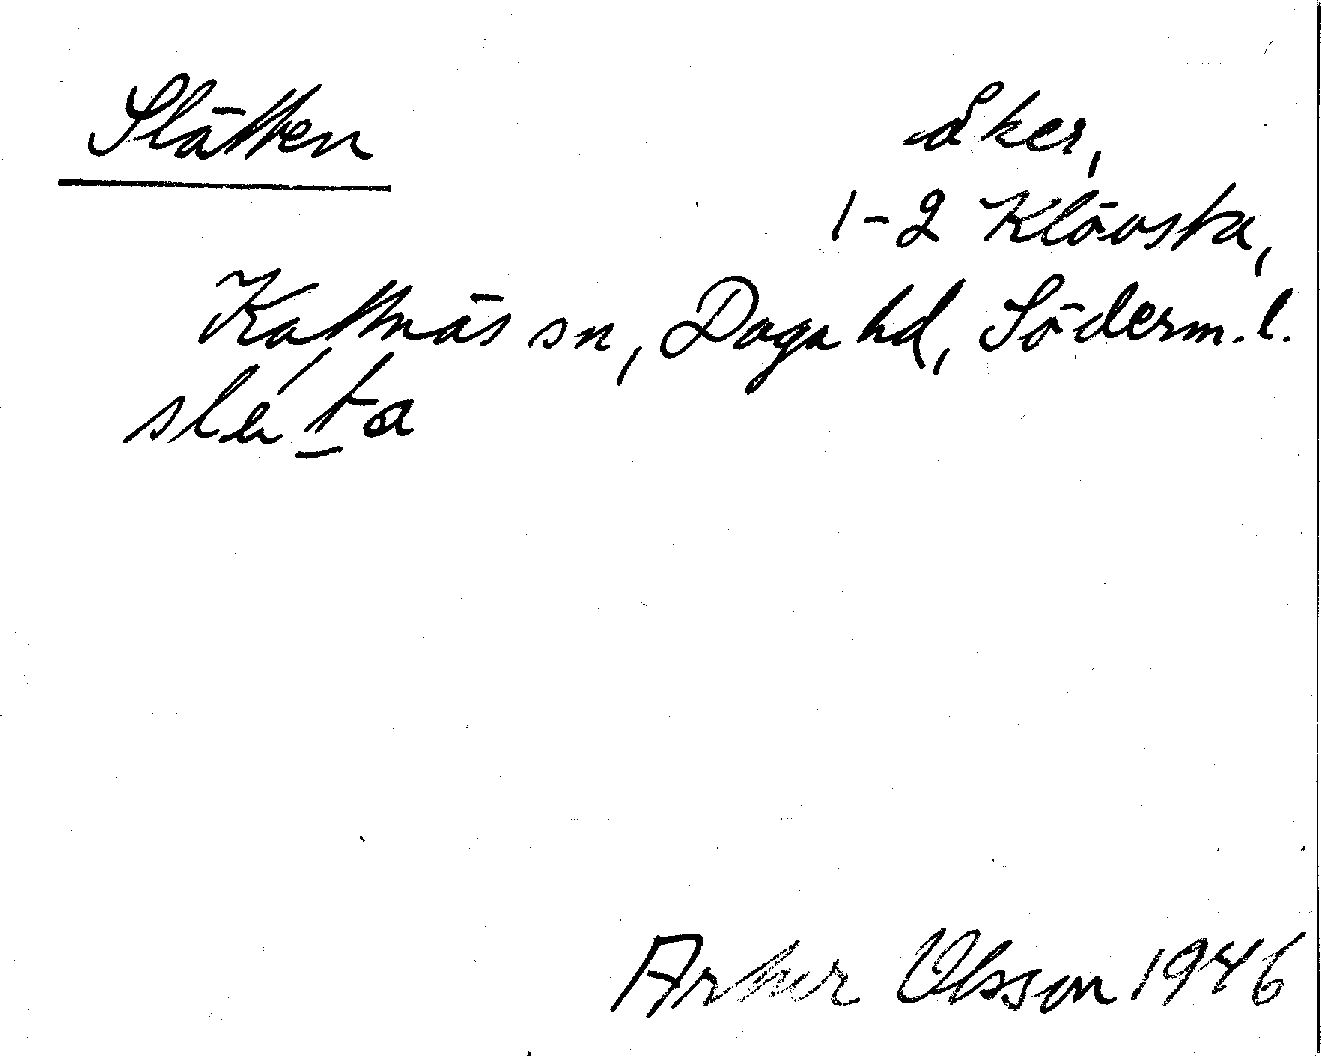 Slätten
åker,
1-2 Klövsta,
Kattnäs sn, Daga hd, Söderm.l.
slä́t̲a
Arthur Olsson 1946